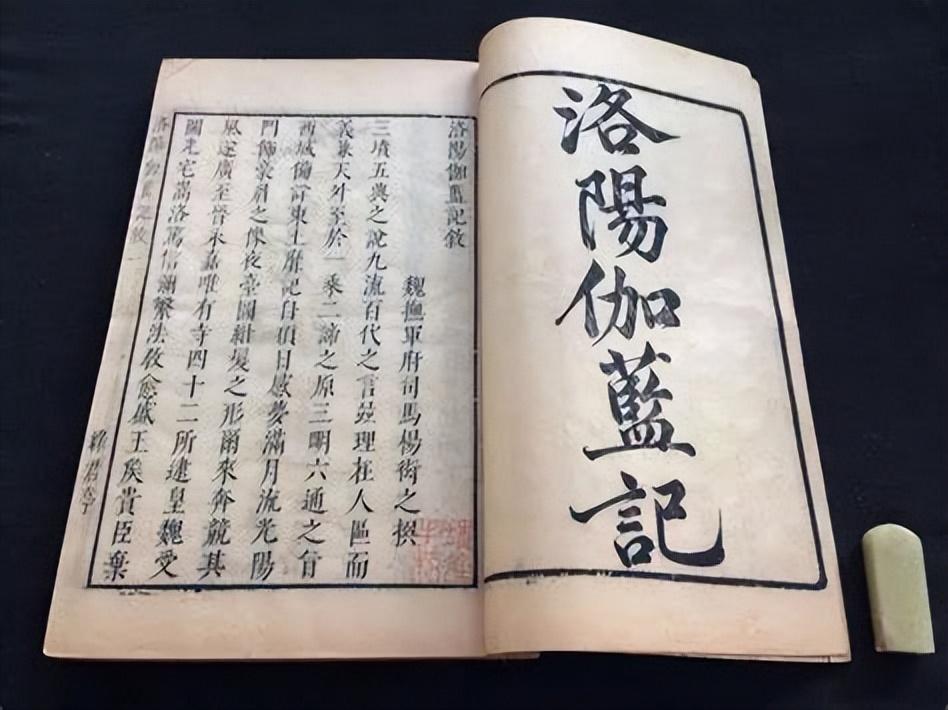 洛陽伽藍記
洛陽伽藍記敘
魏撫軍府司馬楊衒之撰
三墳五典之說九流百代之言並理在人區而
義兼天外至於一乘二諦之原三明六通之旨
西域備詳東土靡記自項日感夢滿月流光陽
門飾豪眉之像夜臺圖紺髮之形爾來奔競其
風遂廣至晉永嘉唯有寺四十二所逮皇魏受
圖光宅嵩洛篤信彌繁法教愈盛王侯貴臣棄
洛陽伽藍記敘 一
綠君亭